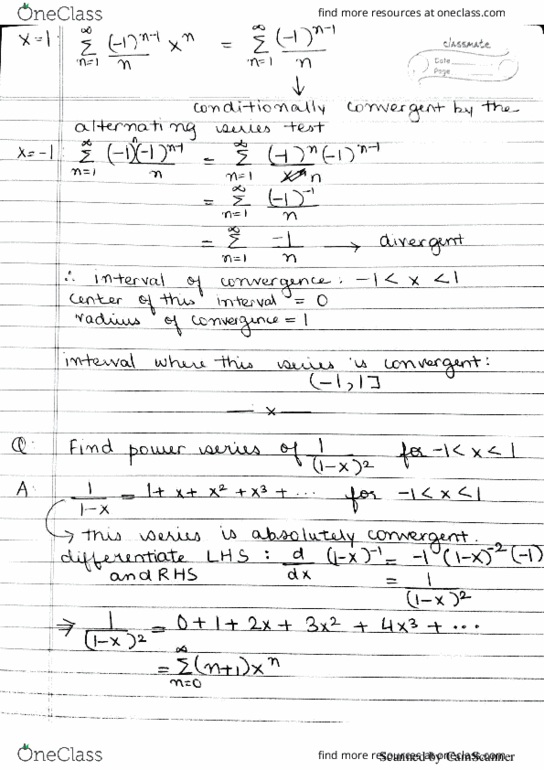 OneClass find more resources at oneclass.com
x=1 ∞Σn=1 (-1)^(n-1)/n x^n = ∞Σn=1 (-1)^(n-1)/n
classmate
Date
Page
↓
conditionally convergent by the
alternating series test
x=-1 ∞Σn=1 (-1)^n(-1)^(n-1)/n = ∞Σn=1 (-1)^n(-1)^(n-1)/n
= ∞Σn=1 (-1)^-1/n
= ∞Σn=1 -1/n → divergent
∴ interval of convergence: -1 < x < 1
center of this interval = 0
radius of convergence = 1
interval where this series is convergent:
(-1, 1]
— x —
Q: Find power series of 1/(1-x)^2 for -1 < x < 1
A: 1/(1-x) = 1 + x + x^2 + x^3 + ... for -1 < x < 1
→ this series is absolutely convergent.
differentiate LHS : d/dx (1-x)^-1 = -1 (1-x)^-2 (-1)
and RHS = 1/(1-x)^2
⇒ 1/(1-x)^2 = 0 + 1 + 2x + 3x^2 + 4x^3 + ...
= ∞Σn=0 (n+1)x^n
OneClass find more resources at oneclass.com
Scanned by CamScanner